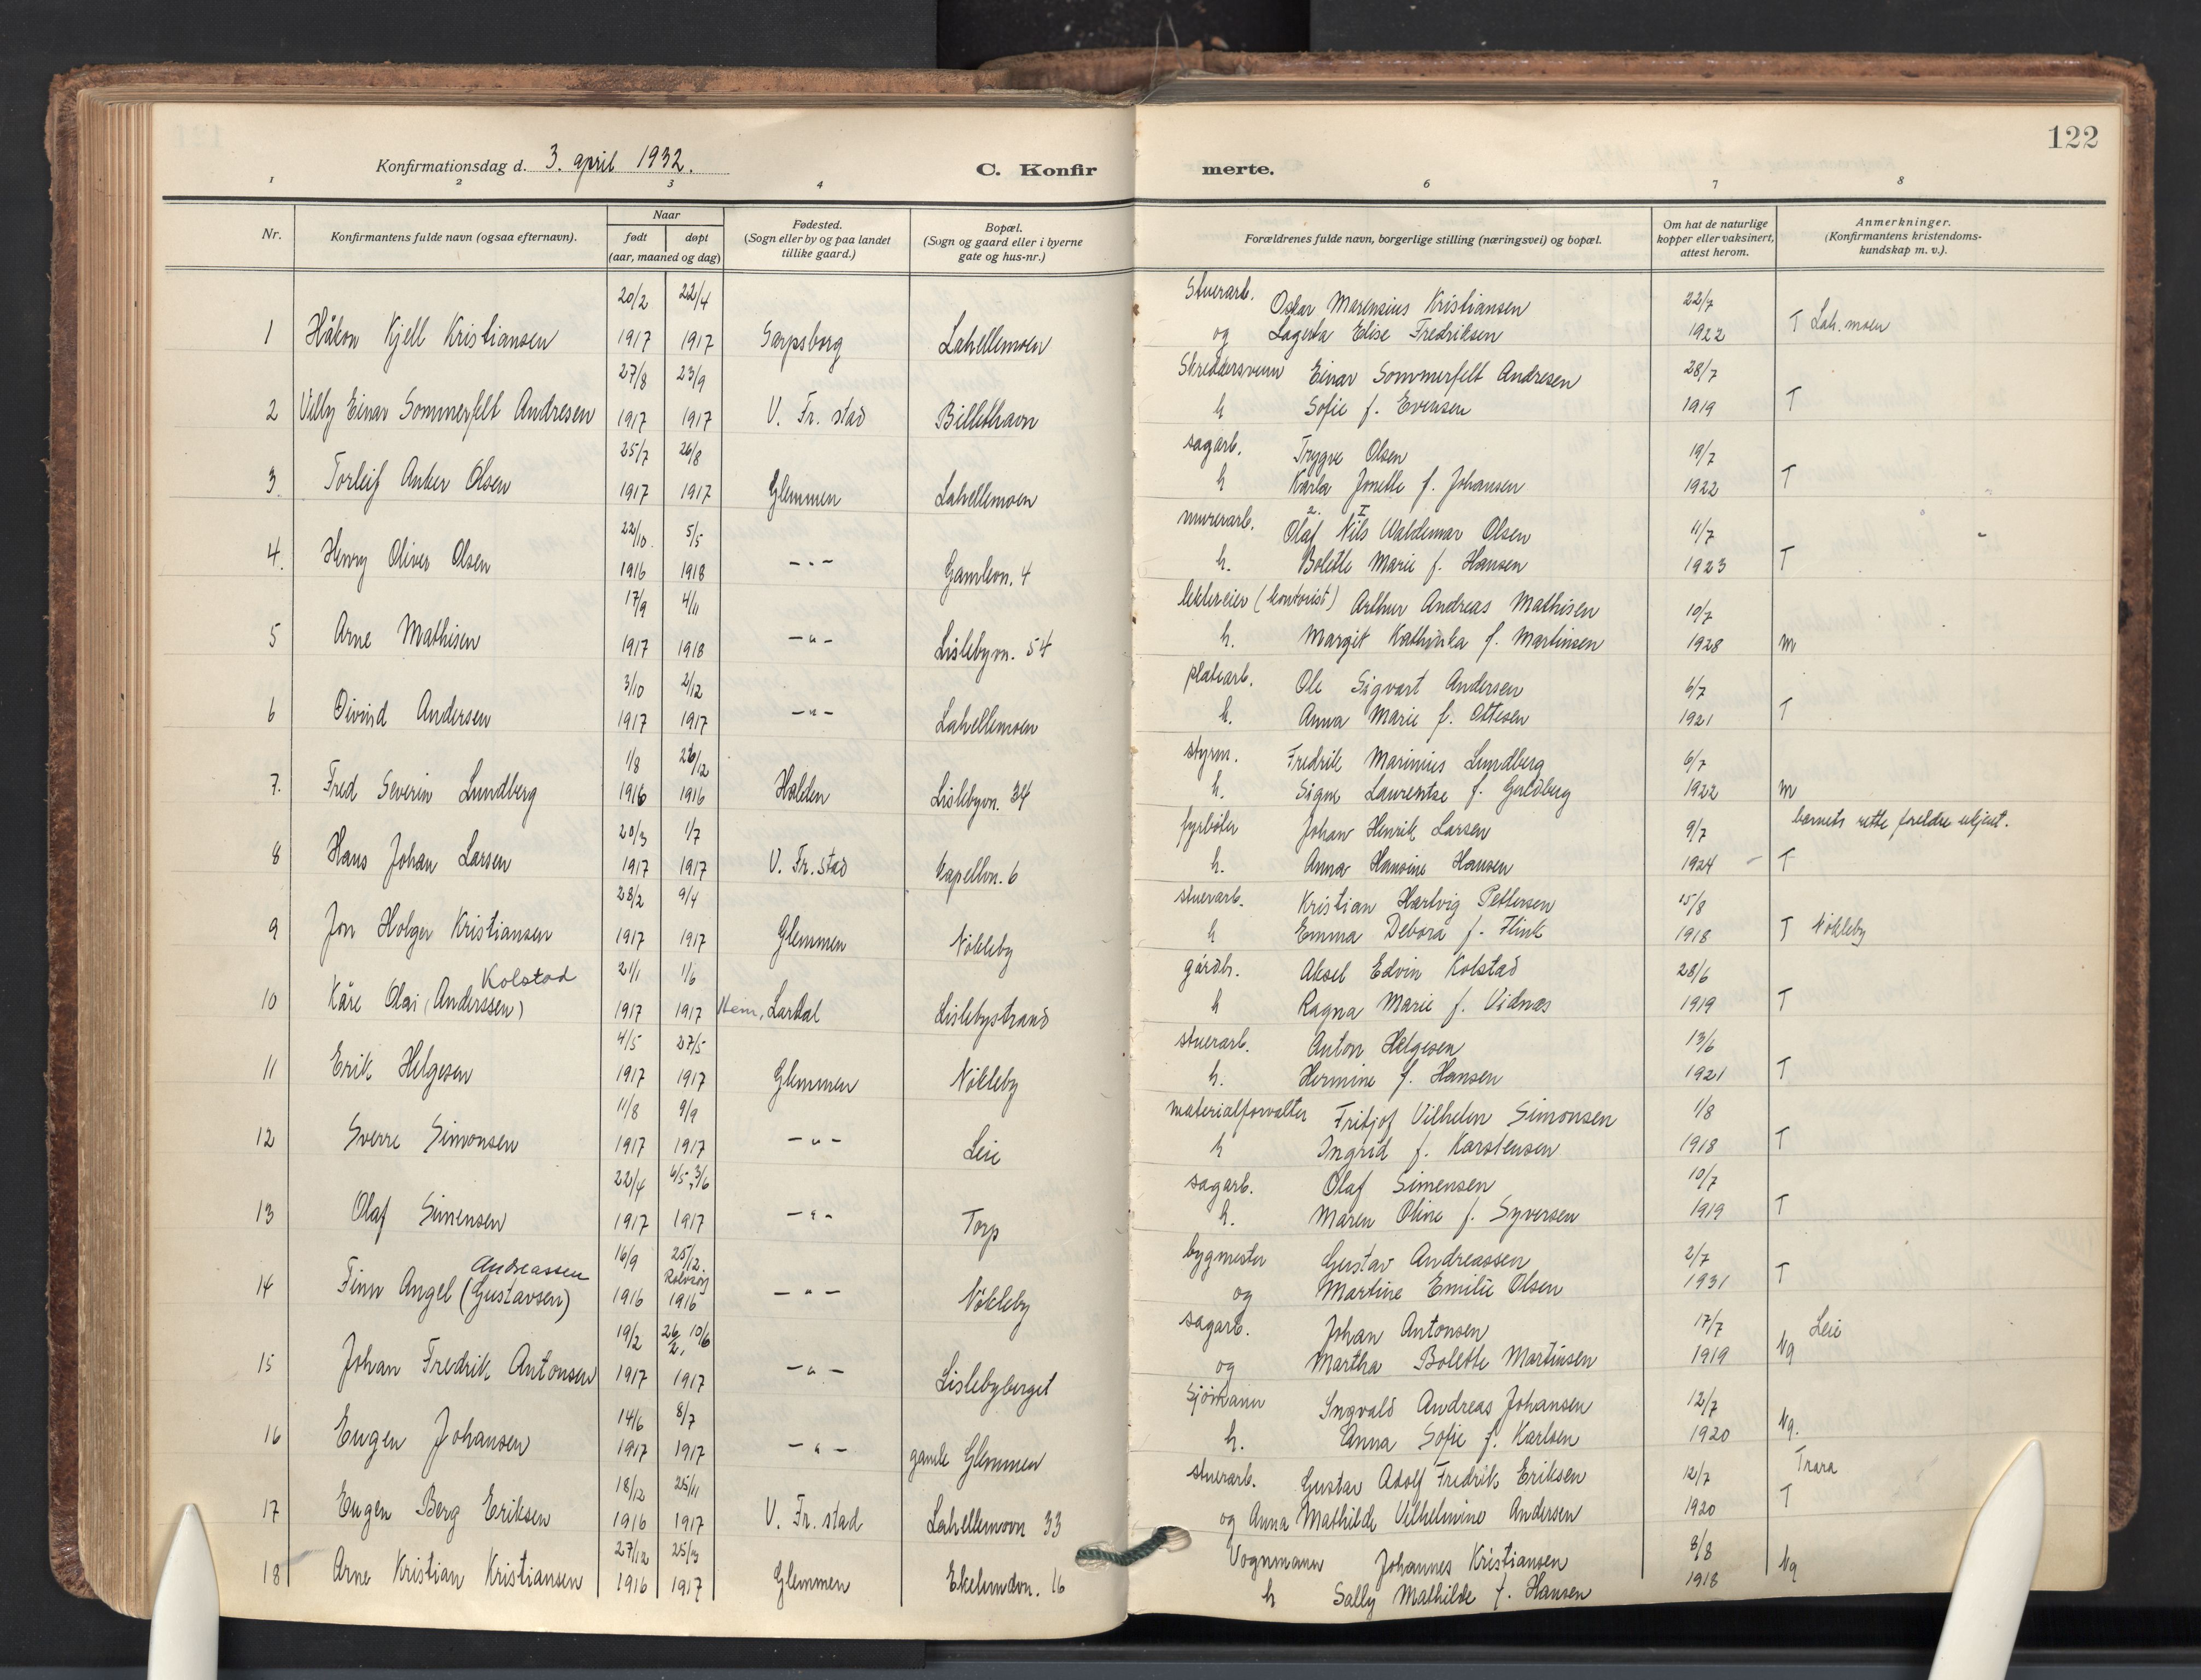 122
Konfirmationsdag d. 3. april 1932.
C. Konfirmerte.
1 2 3 4 6 7 8
Nr.
Konfirmantens fulde navn (ogsaa efternavn).
Naar
født døpt
(aar, maaned og dag)
Fødested.
(Sogn eller by og paa landet
tillike gaard.)
Bopæl.
(Sogn og gaard eller i byerne
gate og hus-nr.)
Forældrenes fulde navn, borgerlige stilling (næringsvei) og bopæl.
Om hat de naturlige
kopper eller vaksinert,
attest herom.
Anmerkninger.
(Konfirmantens kristendoms-
kundskap m. v.).
20/2 22/4 Stuerarb. Oskar Marensius Kristiansen 22/7
1 Håkon Kjell Kristiansen 1917 1917 Sarpsborg Lahellemoen og Lagerta Elise Fredriksen 1922 T Lah.moen
27/8 23/9 Skreddersvenn Einar Sommerfelt Andresen 28/7
2 Villy Einar Sommerfelt Andresen 1917 1917 V. Fr. stad Billethavn h Sofie f. Evensen 1919 T
25/7 26/8 sagarb. Trygve Olsen 19/7
3 Torleif Anker Olsen 1917 1917 Glemmen Lahellemoen h Karla Jonette f. Johansen 1922 T
22/10 5/5 murerarb. Olaf 2. Nils I Waldemar Olsen 11/7
4. Henry Oliver Olsen 1916 1918 -"- Gamlevn. 4 h. Bolette Marie f. Hansen 1923 T
17/9 4/11 lektereier (kontorist) Arthur Andreas Mathisen 10/7
5 Arne Mathisen 1917 1918 -"- Lislebyvn. 54 h. Margit Kathinka f. Martinsen 1928 m
3/10 2/12 platearb. Ole Sigvart Andersen 6/7
6 Öivind Andersen 1917 1917 -"- Lahellemoen h. Anna Marie f. Ottesen 1921 T
1/8 26/12 styrm. Fredrik Marinius Lundberg 6/7
7. Fred Severin Lundberg 1916 1916 Halden Lislebyvn. 34 h. Signe Laurentse f. Guldberg 1922 m
20/3 1/7 fyrbøter Johan Henrik Larsen 9/7 barnets rette foreldre ukjent.
8 Hans Johan Larsen 1917 1917 V. Fr. stad Kapellvn. 6 h. Anna Hansine Hansen 1924 - T
28/2 9/4 stuerarb. Kristian Hartvig Pettersen 15/8
9 Jon Holger Kristiansen 1917 1917 Glemmen Nökleby h Emma Debora f. Flink 1918 T Nökleby
Kolstad 21/1 1/6 gårdb. Aksel Edvin Kolstad 28/6
10 Kåre Olai (Anderssen) 1917 1917 Hem, Lardal Lislebystrand h Ragna Marie f. Vidnes 1919 T
4/5 27/5 stuerarb. Anton Helgesen 13/6
11 Erik Helgesen 1917 1917 Glemmen Nökleby h. Hermine f. Hansen 1921 T
11/8 9/9 materialforvalter Fritjof Vilhelm Simonsen 1/8
12 Sverre Simonsen 1917 1917 -"- Leie h Ingrid f. Karstensen 1918 T
22/4 6/5, 3/6 sagarb. Olaf Simensen 10/7
13 Olaf Simensen 1917 1917 -"- Torp h. Maren Oline f. Syversen 1919 T
Andreassen 16/9 25/12 Rolvsøy bygmester Gustav Andreassen 2/7
14 Finn Angel (Gustavsen) 1916 1916 -"- Nökleby og Martine Emilie Olsen 1931 T
19/2 26/2, 10/6 sagarb. Johan Antonsen 17/7 Leie
15 Johan Fredrik Antonsen 1917 1917 -"- Lislebyberget og Martha Bolette Martinsen 1919 Ng
14/6 8/7 Sjömann Ingvald Andreas Johansen 12/7
16 Eugen Johansen 1917 1917 -"- gamle Glemmen h. Anna Sofie f. Karlsen 1920 Ng.
18/12 25/11 stuerarb. Gustav Adolf Fredrik Eriksen 12/7 Trara
17 Eugen Berg Eriksen 1916 1917 V. Fr. stad Lahellemovn 33 og Anna Mathilde Vilhelmine Andersen 1920 T
27/12 25/3 Vognmann Johannes Kristiansen 8/8
18 Arne Kristian Kristiansen 1916 1917 Glemmen Ekelundvn. 16 h Sally Mathilde f. Hansen 1918 Ng